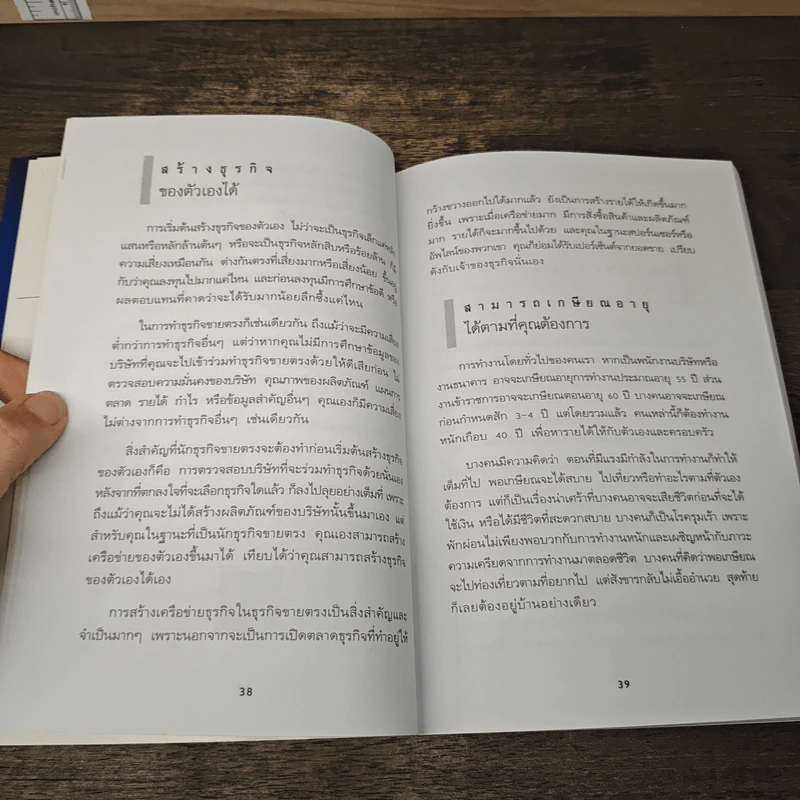 สร้างธุรกิจ
ของตัวเองได้
การเริ่มต้นสร้างธุรกิจของตัวเอง ไม่ว่าจะเป็นธุรกิจเล็กแค่หลัก
แสนหรือหลักล้านต้นๆ หรือจะเป็นธุรกิจหลักสิบหรือร้อยล้าน ก็มี
ความเสี่ยงเหมือนกัน ต่างกันตรงที่เสี่ยงมากหรือเสี่ยงน้อย ขึ้นอยู่
กับว่าคุณลงทุนไปมากแค่ไหน และก่อนลงทุนมีการศึกษาข้อดี หรือ
ผลตอบแทนที่คาดว่าจะได้รับมากน้อยลึกซึ้งแค่ไหน
ในการทำธุรกิจขายตรงก็เช่นเดียวกัน ถึงแม้ว่าจะมีความเสี่ยง
ต่ำกว่าการทำธุรกิจอื่นๆ แต่ว่าหากคุณไม่มีการศึกษาข้อมูลของ
บริษัทที่คุณจะไปเข้าร่วมทำธุรกิจขายตรงด้วยให้ดีเสียก่อน ไม่
ตรวจสอบความมั่นคงของบริษัท คุณภาพของผลิตภัณฑ์ แผนการ
ตลาด รายได้ กำไร หรือข้อมูลสำคัญอื่นๆ คุณเองก็มีความเสี่ยง
ไม่ต่างจากการทำธุรกิจอื่นๆ เช่นเดียวกัน
สิ่งสำคัญที่นักธุรกิจขายตรงจะต้องทำก่อนเริ่มต้นสร้างธุรกิจ
ของตัวเองก็คือ การตรวจสอบบริษัทที่จะร่วมทำธุรกิจด้วยนั่นเอง
หลังจากที่ตกลงใจที่จะเลือกธุรกิจใดแล้ว ก็ลงไปลุยอย่างเต็มที่ เพราะ
ถึงแม้ว่าคุณจะไม่ได้สร้างผลิตภัณฑ์ของบริษัทนั้นขึ้นมาเอง แต่
สำหรับคุณในฐานะที่เป็นนักธุรกิจขายตรง คุณเองสามารถสร้าง
เครือข่ายของตัวเองขึ้นมาได้ เทียบได้ว่าคุณสามารถสร้างธุรกิจ
ของตัวเองได้เอง
การสร้างเครือข่ายธุรกิจในธุรกิจขายตรงเป็นสิ่งสำคัญและ
จำเป็นมากๆ เพราะนอกจากจะเป็นการเปิดตลาดธุรกิจที่ทำอยู่ให้
38
กว้างขวางออกไปได้มากแล้ว ยังเป็นการสร้างรายได้ให้เกิดขึ้นมาก
ยิ่งขึ้น เพราะเมื่อเครือข่ายมาก มีการสั่งซื้อสินค้าและผลิตภัณฑ์
มาก รายได้ก็จะมากขึ้นไปด้วย และคุณในฐานะสปอร์นเซอร์หรือ
อัพไลน์ของพวกเขา คุณก็ย่อมได้รับเปอร์เซ็นต์จากยอดขาย เปรียบ
ดังกับเจ้าของธุรกิจนั่นเอง
สามารถเกษียณอายุ
ได้ตามที่คุณต้องการ
การทำงานโดยทั่วไปของคนเรา หากเป็นพนักงานบริษัทหรือ
งานธนาคาร อาจจะเกษียณอายุการทำงานประมาณอายุ 55 ปี ส่วน
งานข้าราชการอาจจะเกษียณตอนอายุ 60 ปี บางคนอาจจะเกษียณ
ก่อนกำหนดสัก 3-4 ปี แต่โดยรวมแล้ว คนเหล่านี้ก็ต้องทำงาน
หนักเกือบ 40 ปี เพื่อหารายได้ให้กับตัวเองและครอบครัว
บางคนมีความคิดว่า ตอนที่มีแรงมีกำลังในการทำงานก็ทำให้
เต็มที่ไป พอเกษียณจะได้สบาย ไปเที่ยวหรือทำอะไรตามที่ตัวเอง
ต้องการ แต่ก็เป็นเรื่องน่าเศร้าที่บางคนอาจจะเสียชีวิตก่อนที่จะได้
ใช้เงิน หรือได้มีชีวิตที่สะดวกสบาย บางคนก็เป็นโรครุมเร้า เพราะ
พักผ่อนไม่เพียงพอบวกกับการทำงานหนักและเผชิญหน้ากับภาวะ
ความเครียดจากการทำงานมาตลอดชีวิต บางคนที่คิดว่าพอเกษียณ
จะไปท่องเที่ยวตามที่อยากไป แต่สังขารกลับไม่เอื้ออำนวย สุดท้าย
ก็เลยต้องอยู่บ้านอย่างเดียว
39